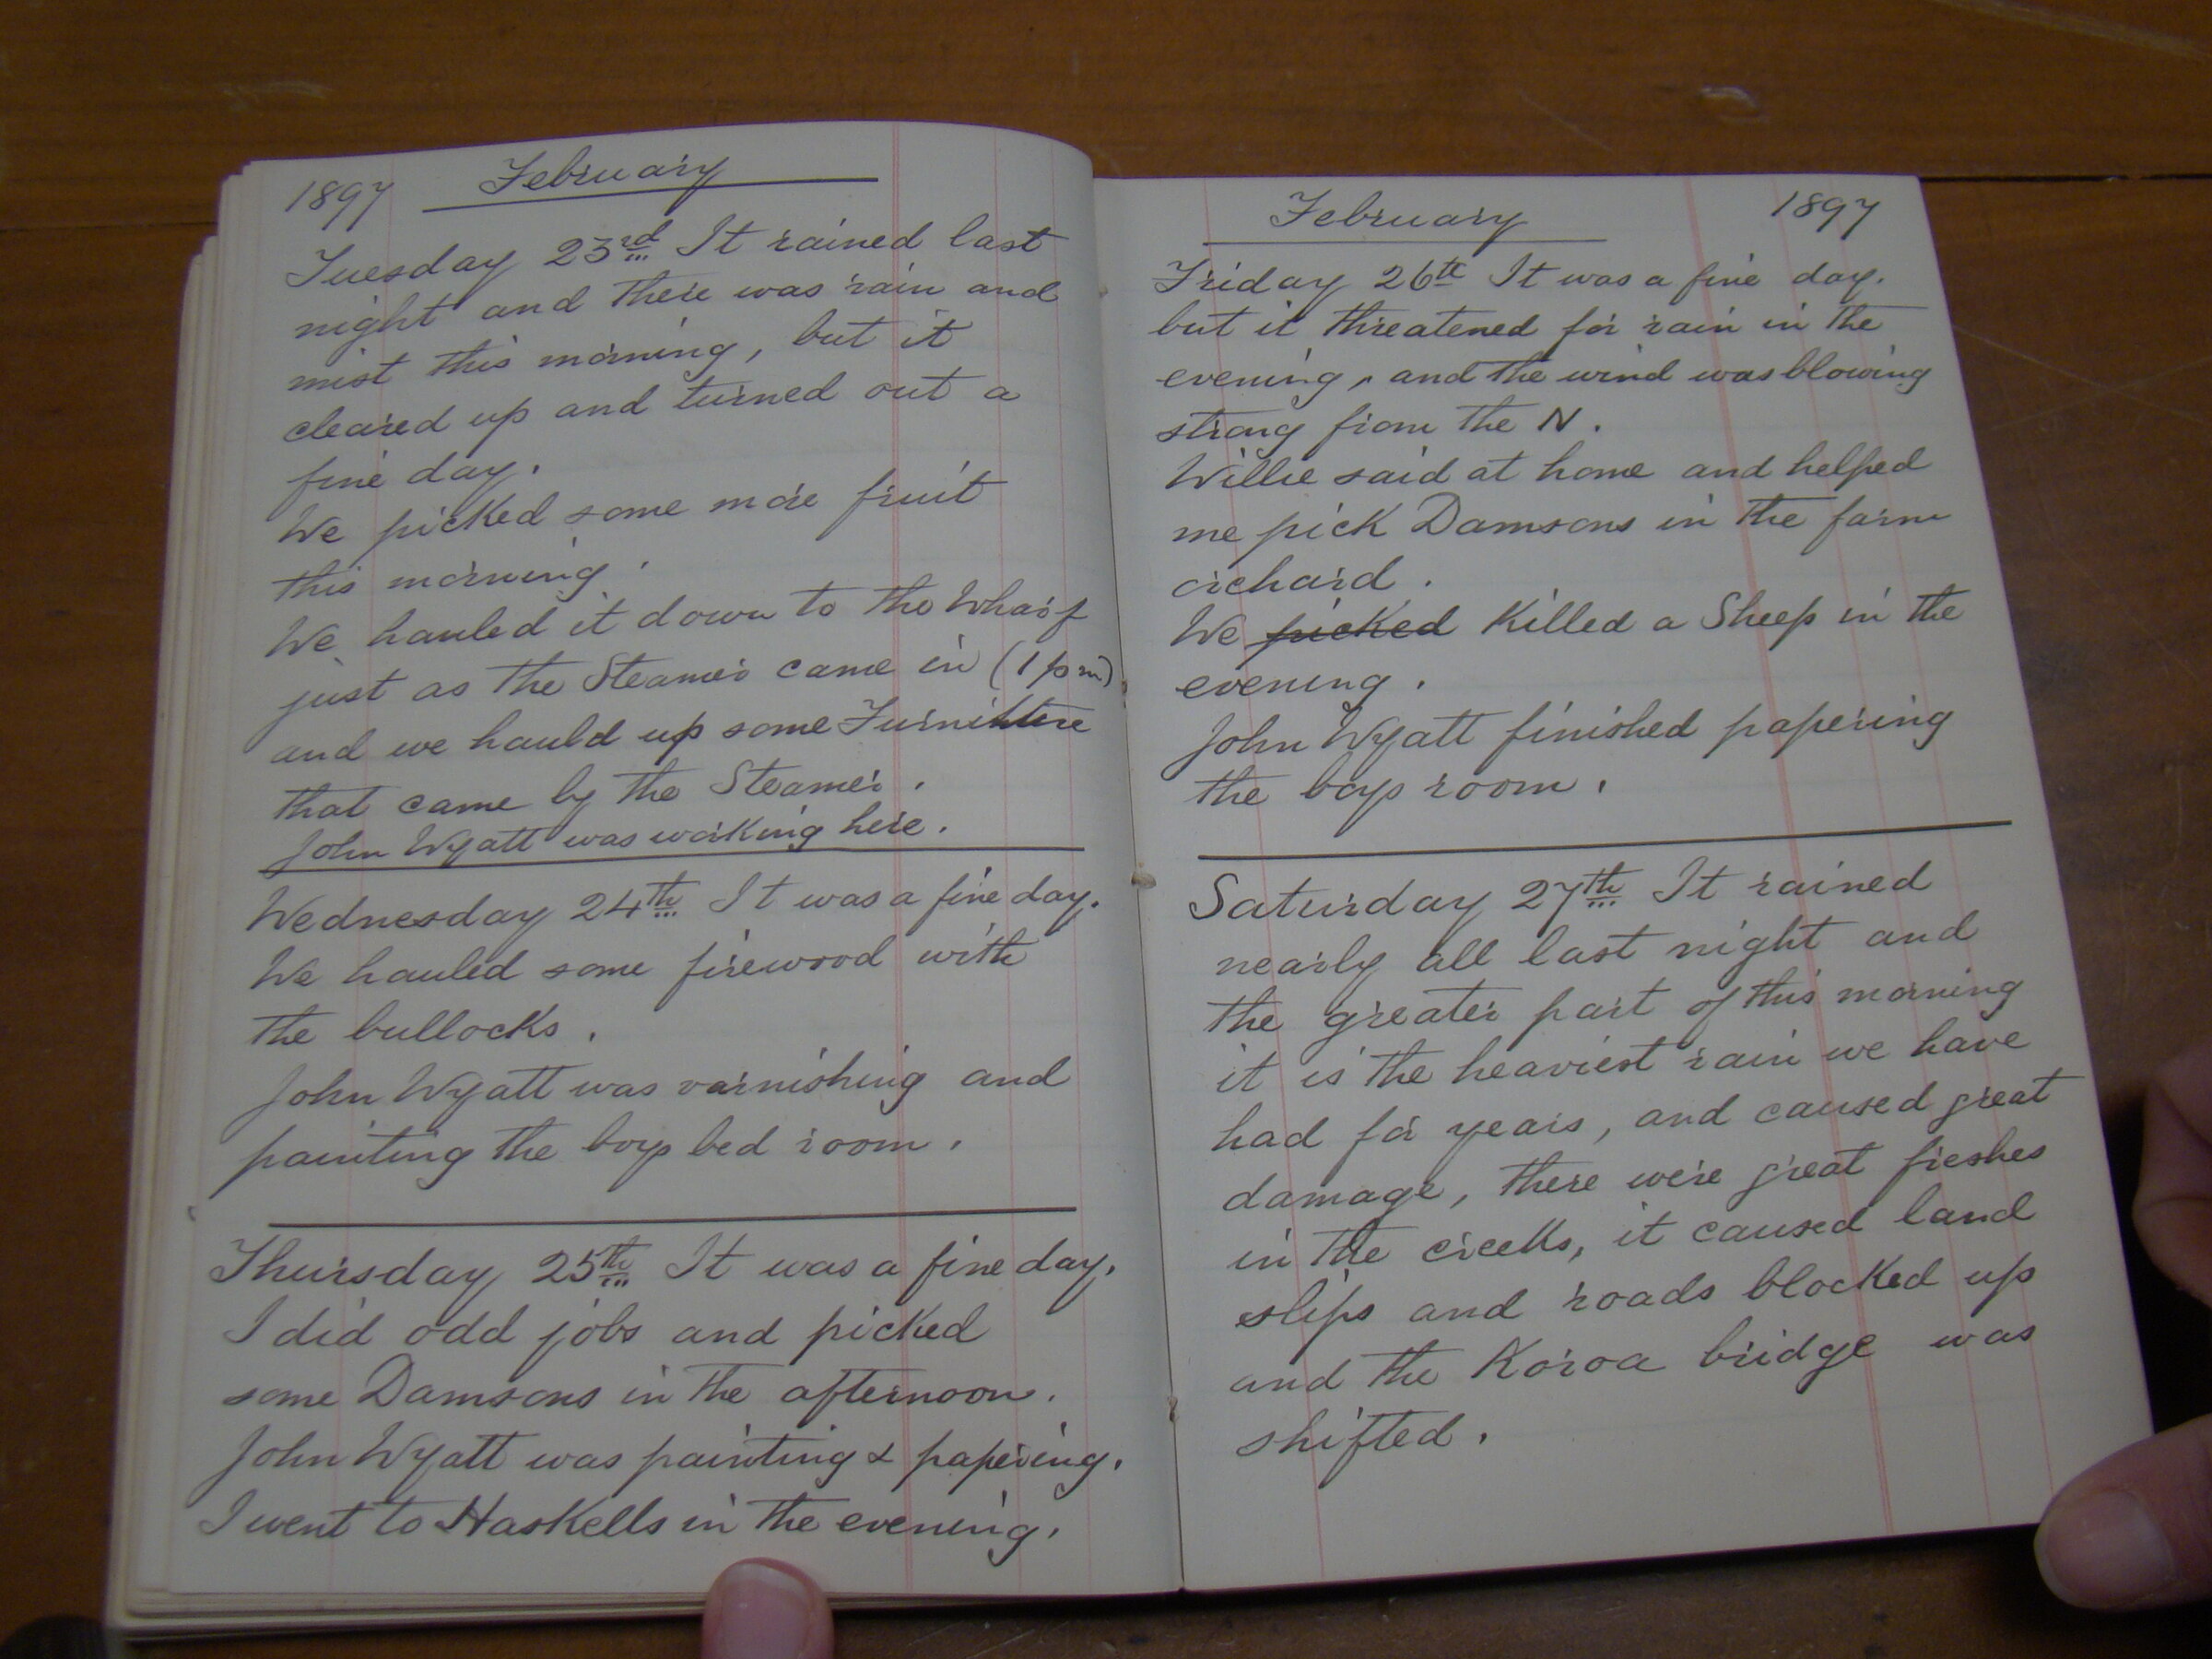 1897 February
Tuesday 23rd It rained last
night and there was rain and
mist this morning, but it
cleared up and turned out a
fine day.
We picked some more fruit
this morning.
We hauled it down to the Wharf
just as the Steamer came in (1 pm)
and we hauld up some Furniture
that came by the Steamer.
John Wyatt was working here.
Wednesday 24th It was a fine day.
We hauled some firewood with
the bullocks.
John Wyatt was varnishing and
painting the boys bed room.
Thursday 25th It was a fine day.
I did odd jobs and picked
some Damsons in the afternoon.
John Wyatt was painting & papering.
I went to Haskells in the evening.
February 1897
Friday 26th It was a fine day.
but it threatened for rain in the
evening, and the wind was blowing
strong from the N.
Willie said at home and helped
me pick Damsons in the farm
orchard.
We picked Killed a Sheep in the
evening.
John Wyatt finished papering
the boys room.
Saturday 27th It rained
nearly all last night and
the greater part of this morning
it is the heaviest rain we have
had for years, and caused great
damage, there were great freshes
in the creeks, it caused land
slips and roads blocked up
and the Koroa bridge was
shifted.